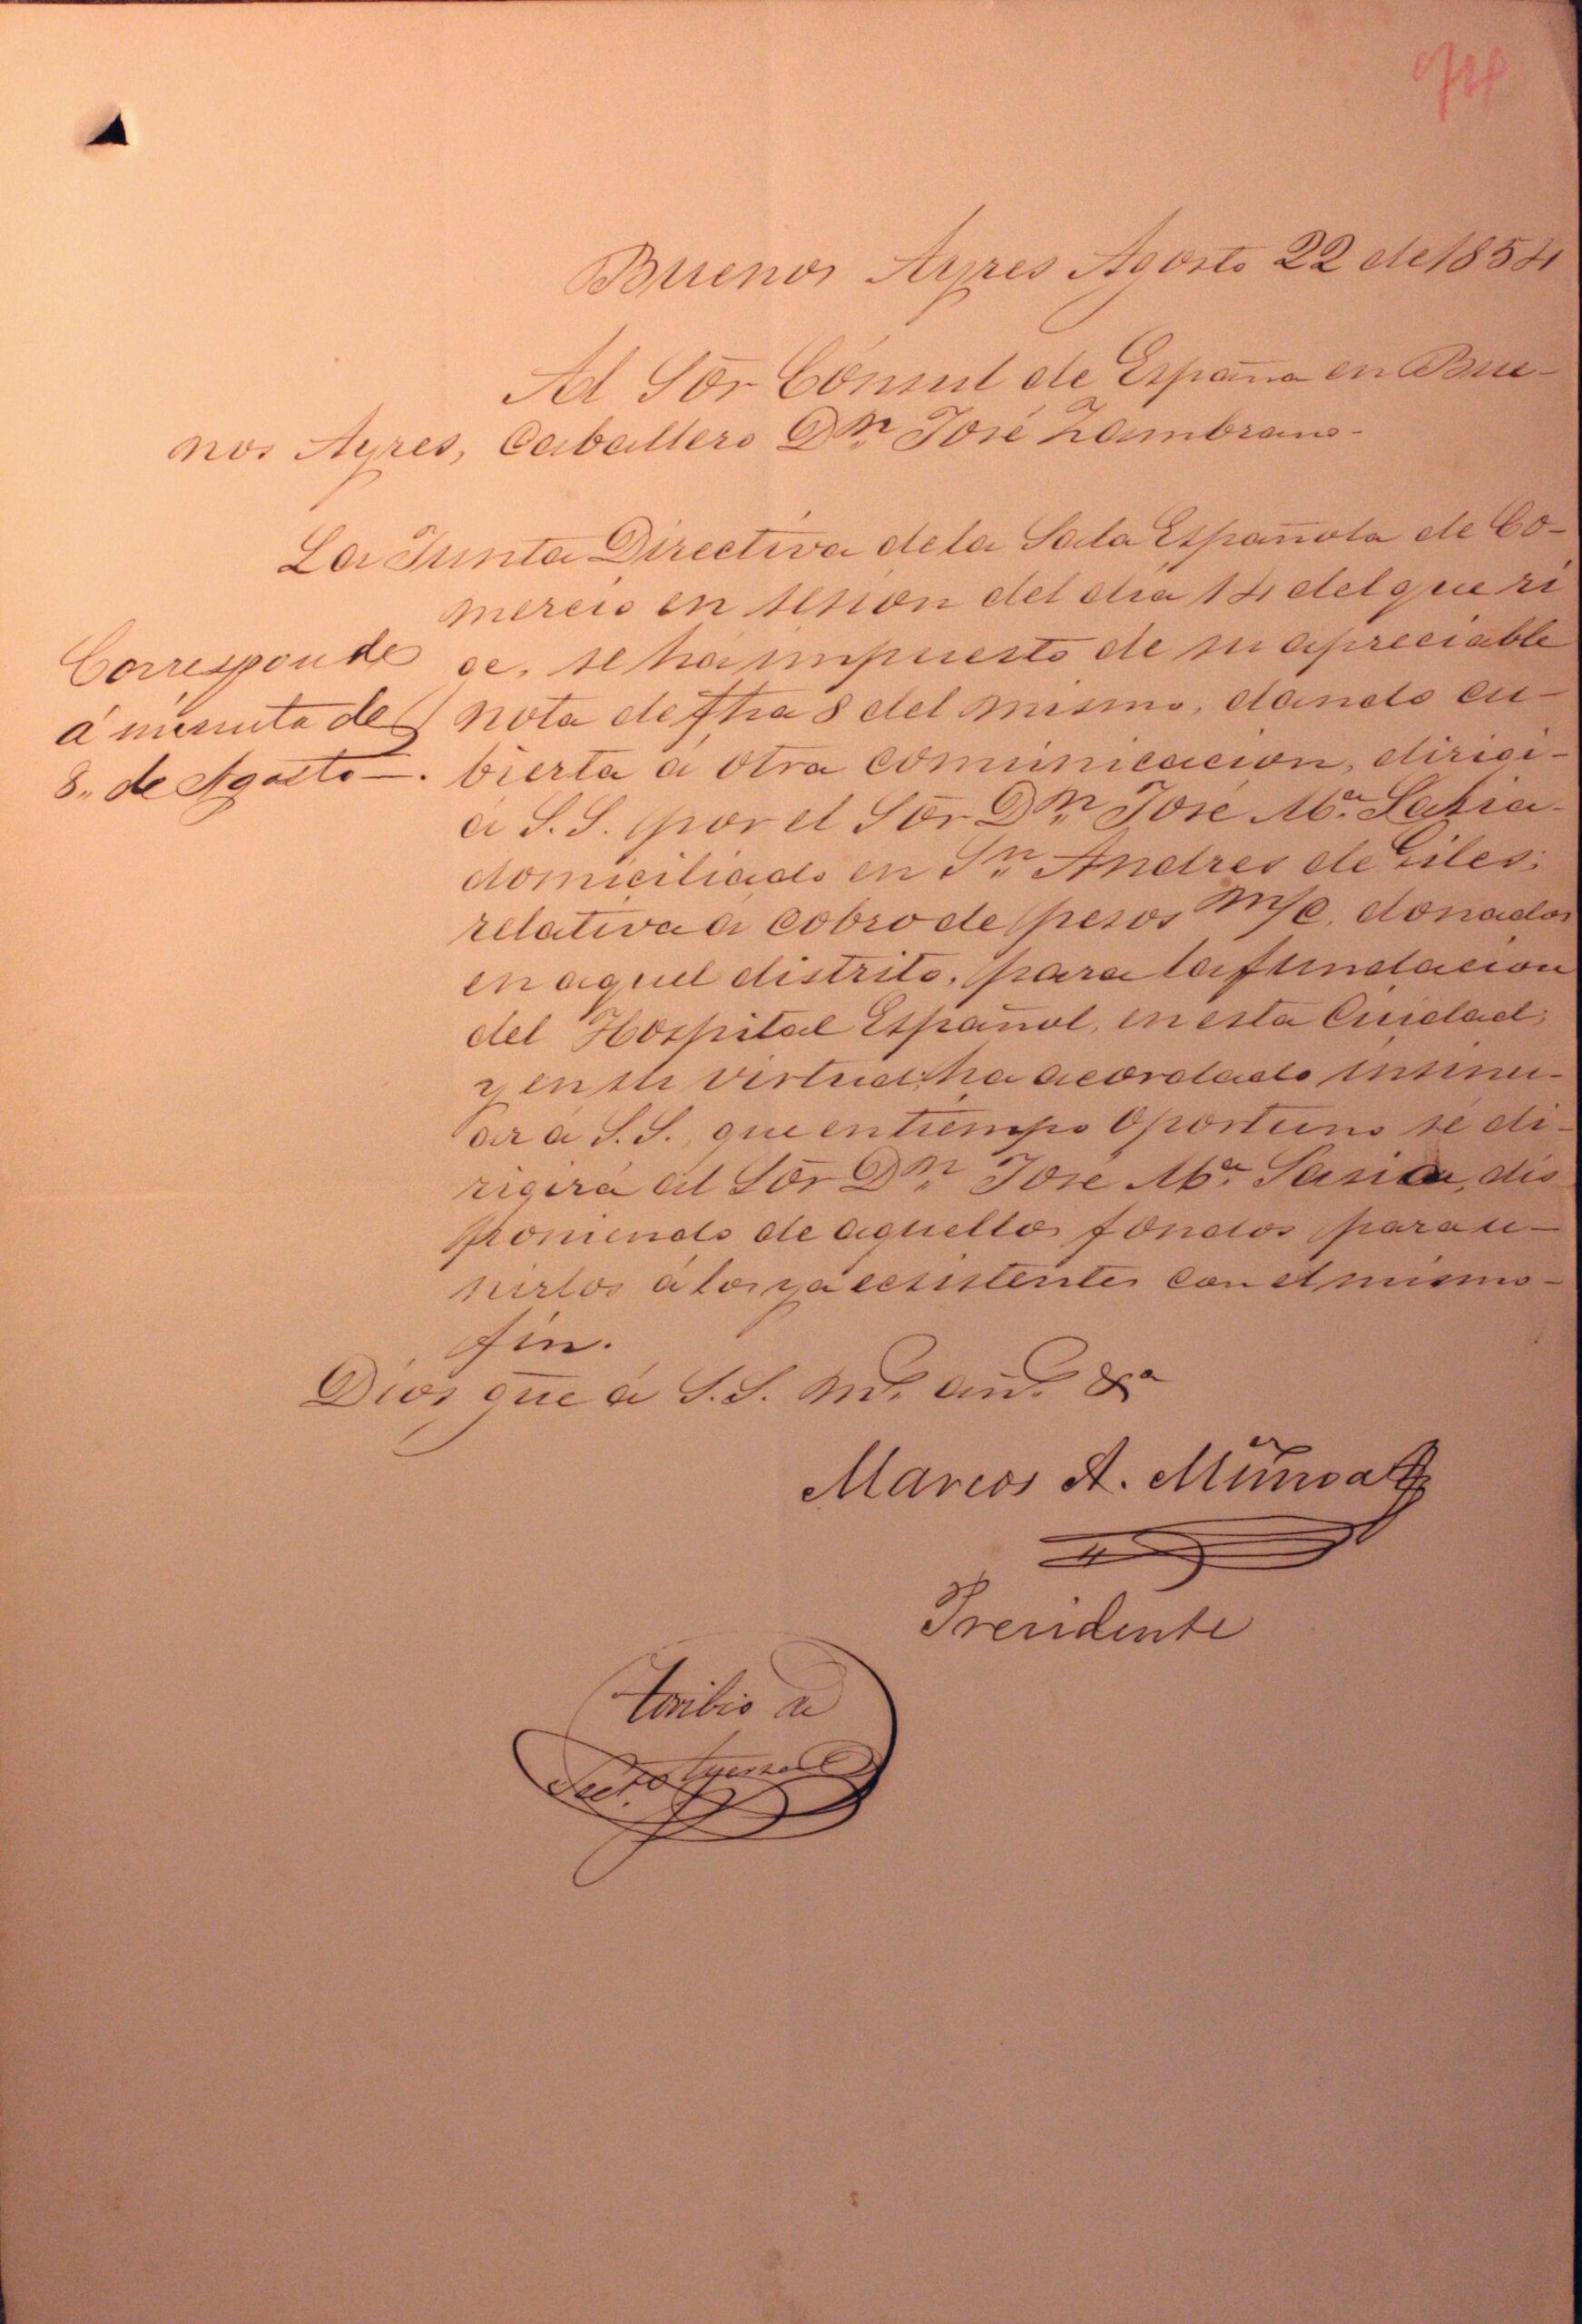 Buenos Ayres Agosto 22 de 1854
Al Sōr Cónsul de España en Bue-
nos Ayres, Caballero Dⁿ José Zambrano-
La Junta Directiva de la Sala Española de Co-
mercio en sesion del dia 14 del que ri
ge, se há impuesto de su apreciable
nota de fha 8 del mismo, dando cu-
bierta á otra comunicacion, dirigi-
á S.S. por el Sōr Dⁿ José Mᵃ Sasia-
domiciliado en Sⁿ Andres de Giles;
relativa á cobro de pesos m/c. donados
en aquel distrito, para la fundacion
del Hospital Español, en esta Ciudad;
y en su virtud, ha acordado insinu-
ar á S.S., que en tiempo oportuno se di-
rigirá al Sōr Dⁿ José Mᵃ Sasia, dis
poniendo de aquellos fondos para u-
nirlos á los ya ecsistentes con el mismo-
fin.
Corresponde
á minuta de
8,, de Agosto-.
Dios gūe á S.S. mˢ. añˢ. &ᵃ
Marcos A. Muñoa
Presidente
Toribio de
Secᵗᵒ